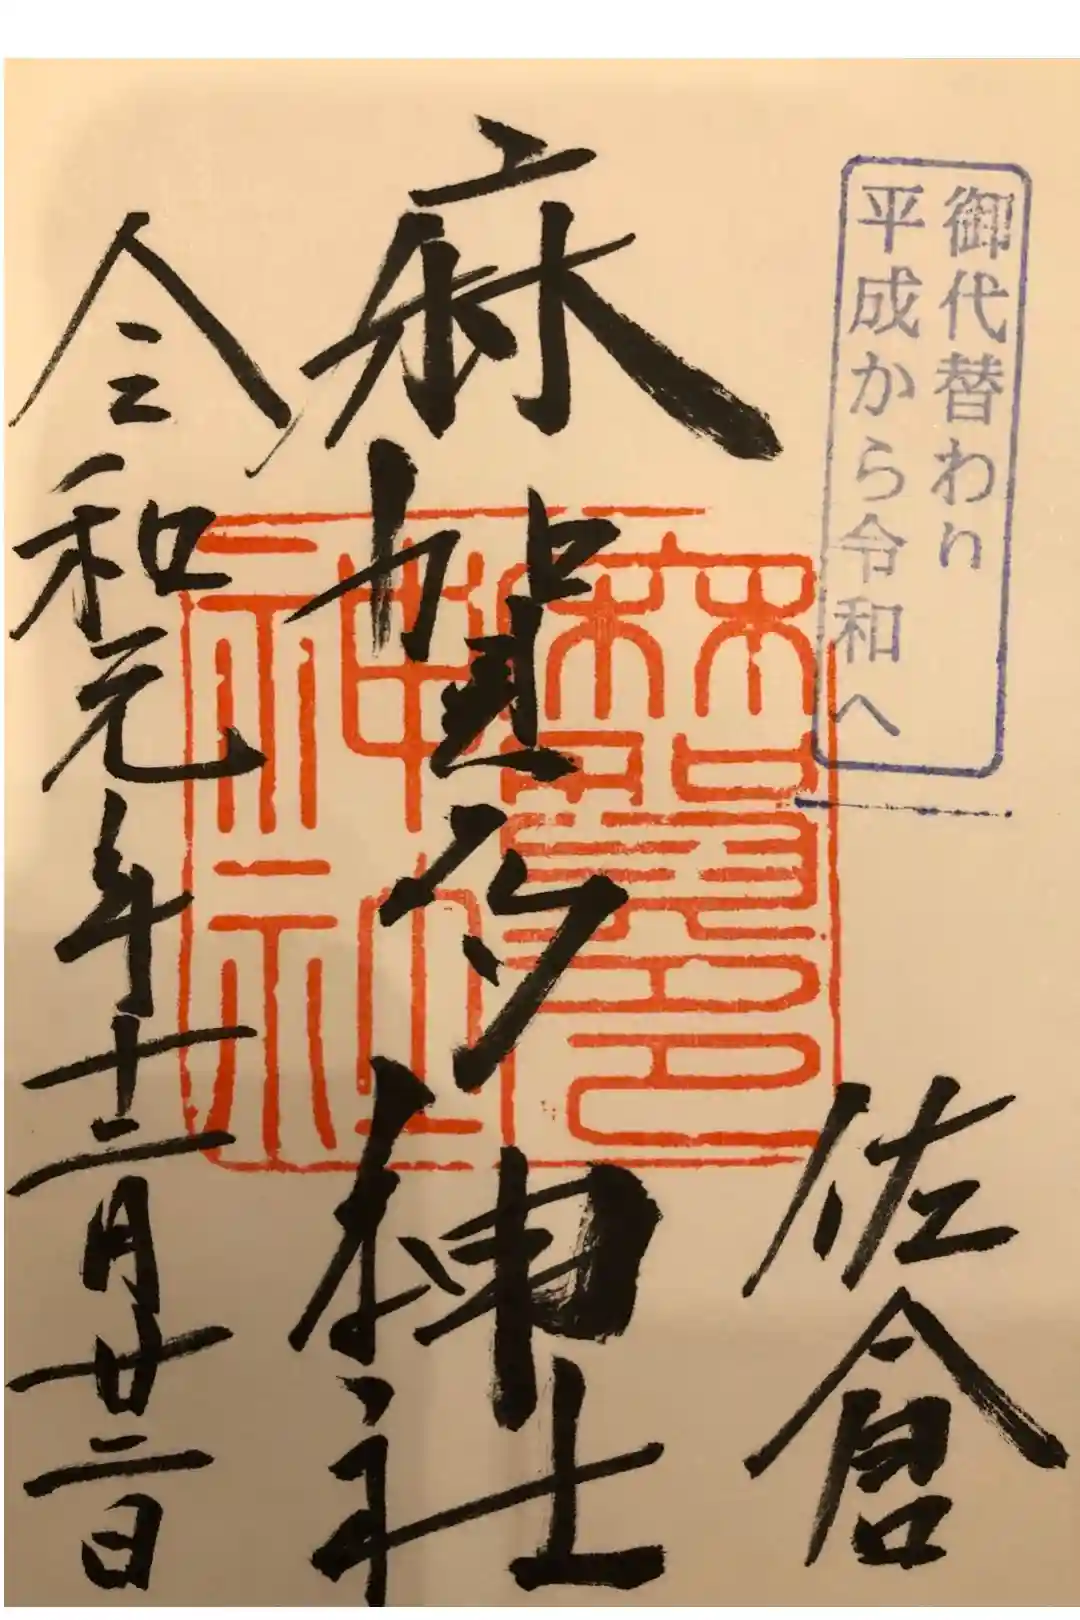 御代替わり
平成から令和へ
佐倉
麻賀多神社
麻賀多神社
令和元年十二月廿二日